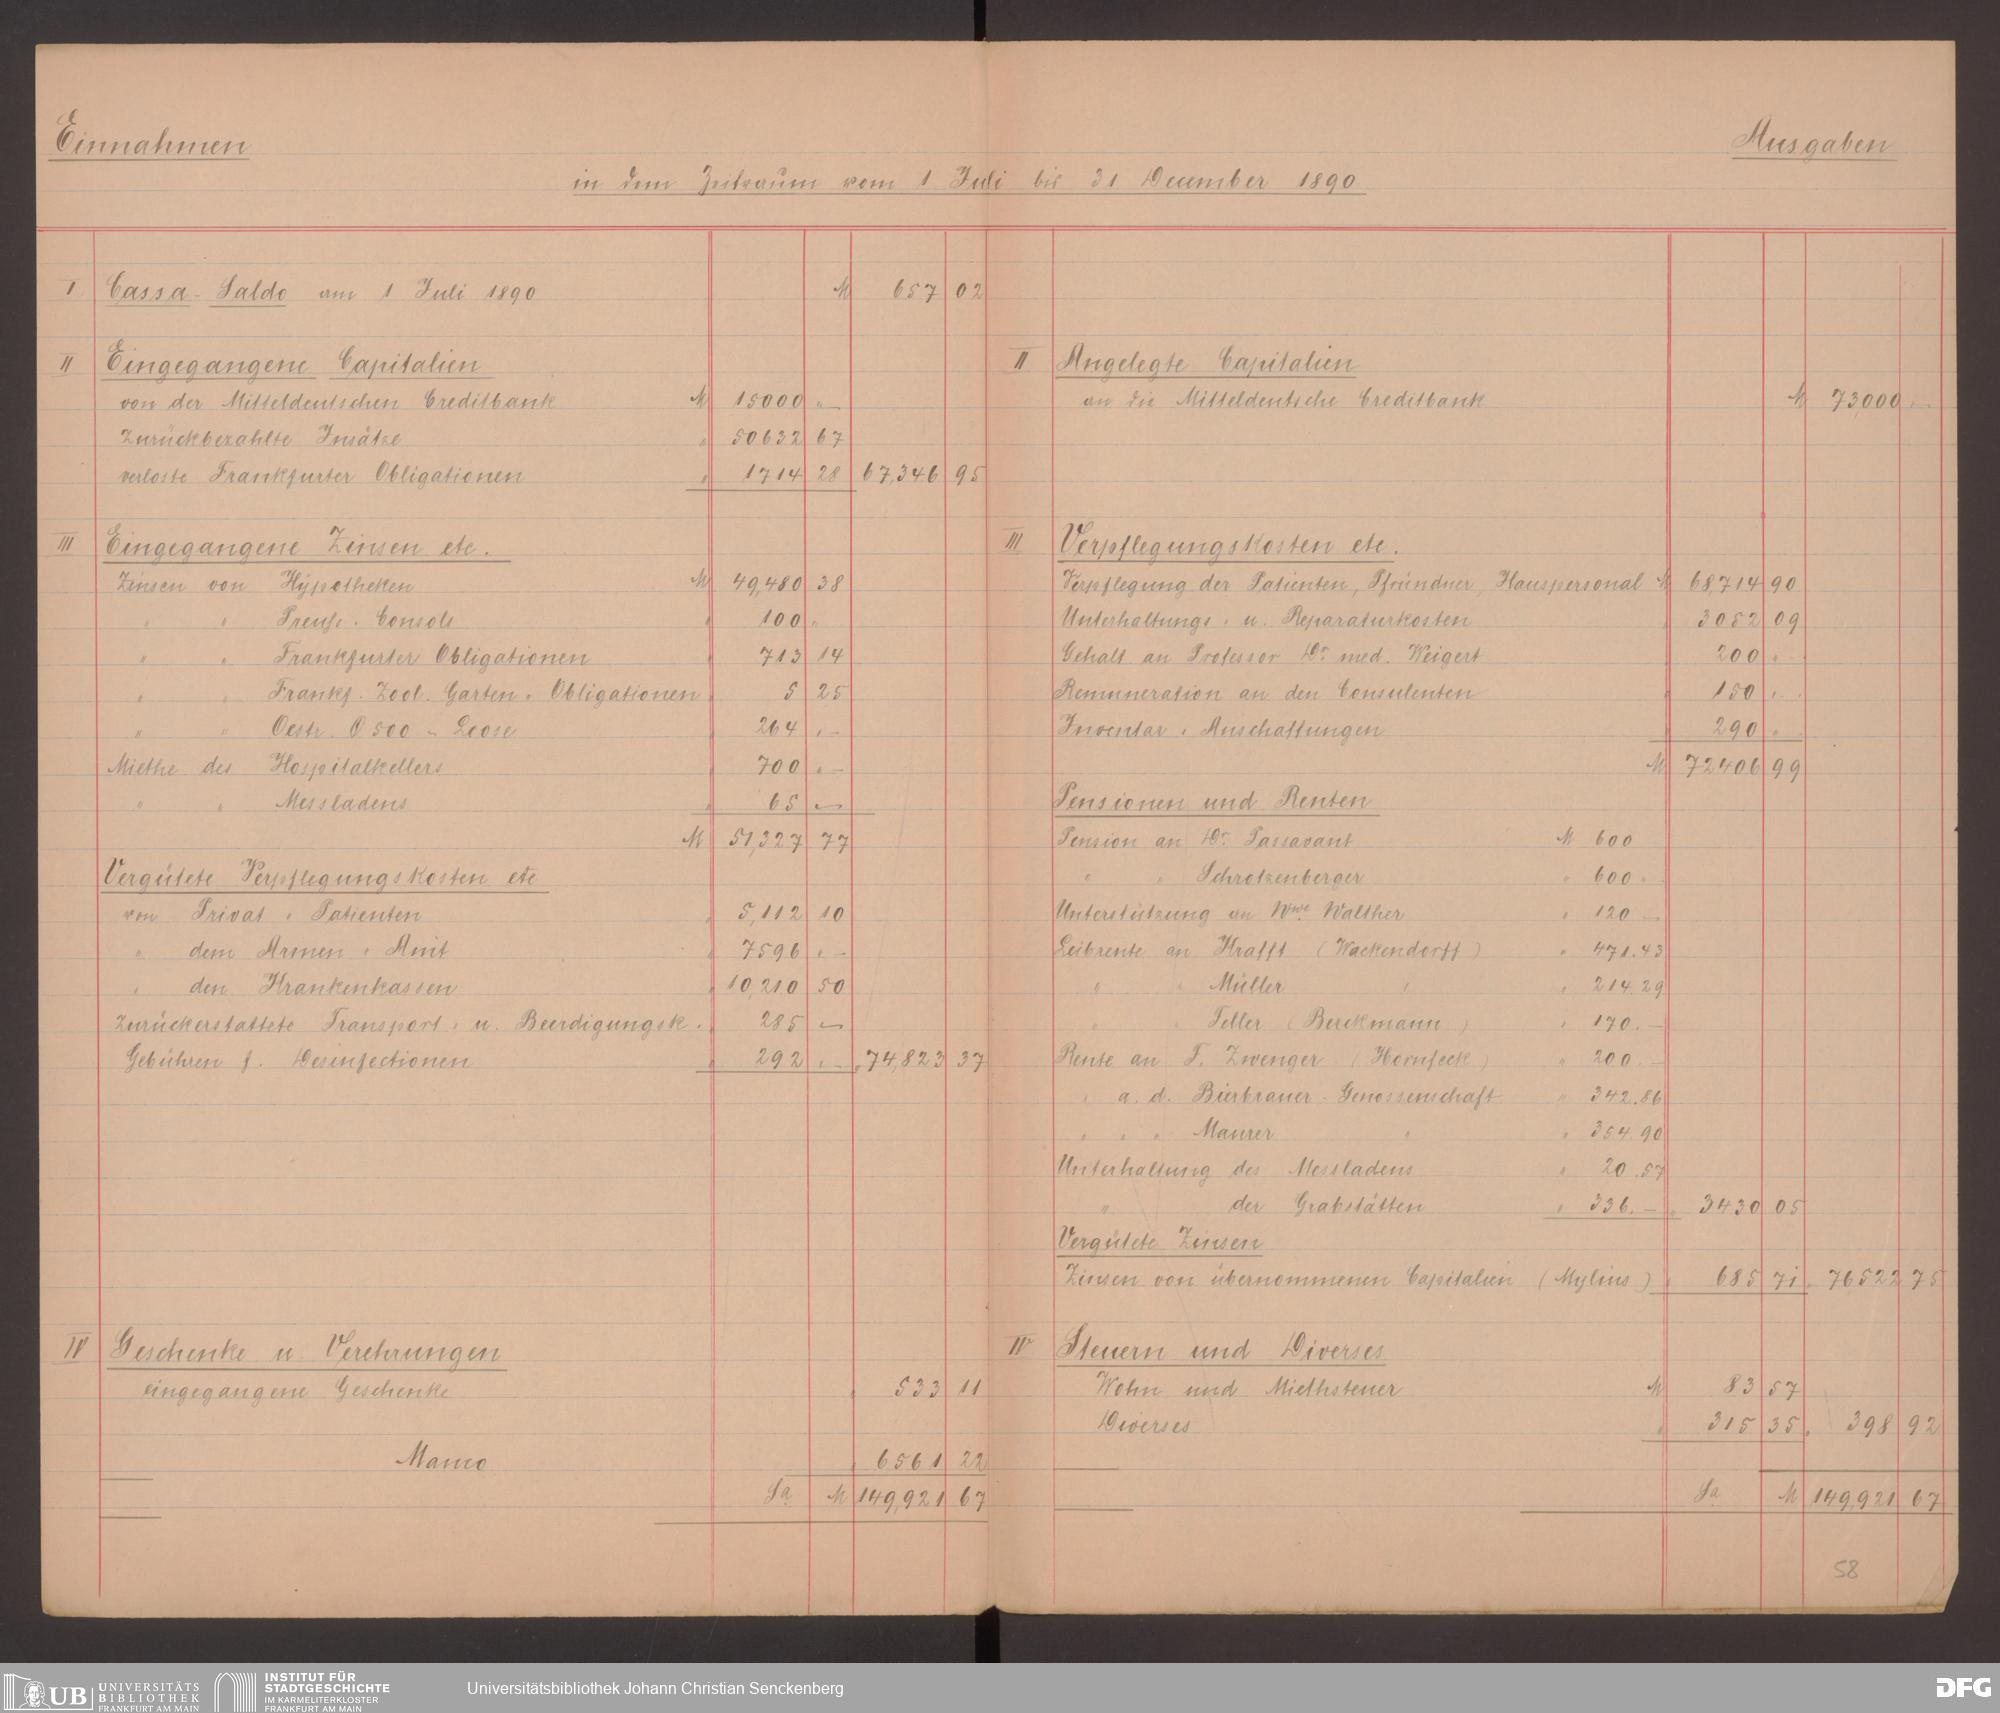 Einnahmen
Ausgaben
in dem Zeitraum vom 1 Juli bis 31 December 1890
I Cassa-Saldo am 1 Juli 1890 M 657 02
II Eingegangene Capitalien
von der Mitteldeutschen Creditbank M 15000 "—
Zurückbezahlte Insätze " 50632 67
verloste Frankfurter Obligationen " 1714 28 67,346 95
III Eingegangene Zinsen etc.
Zinsen von Hypotheken M 49,480 38
" " Preuss. Consols " 100 "
" " Frankfurter Obligationen " 713 14
" " Frankf. Zool. Garten-Obligationen 5 25
" " Oestr. 500 - Loose " 264 "—
Miethe des Hospitalkellers " 700 "—
" " Messladens " 65 "—
M 51,327 77
Vergütete Verpflegungskosten etc
von Privat-Patienten " 5,112 10
" dem Armen-Amt " 7596 "—
" den Krankenkassen " 10,210 50
Zurückerstattete Transport- u. Beerdigungsk. " 285 "—
Gebühren f. Desinfectionen " 292 "— " 74,823 37
IV Geschenke u. Verehrungen
eingegangene Geschenke " 533 11
Manco " 6561 22
Sa M 149,921 67
II Angelegte Capitalien
an die Mitteldeutsche Creditbank M 73,000 "—
III Verpflegungskosten etc.
Verpflegung der Patienten, Pfründner, Hauspersonal M 68,714 90
Unterhaltungs- u. Reparaturkosten " 3052 09
Gehalt an Professor Dr med. Weigert 200 "—
Remuneration an den Consulenten " 150 "—
Inventar-Anschaffungen " 290 "
M 72406 99
Pensionen und Renten
Pension an Dr Passavant M 600
" " Schrotzenberger " 600 "
Unterstützung an Wwe Walther " 120 —
Leibrente an Krafft (Wackendorff) " 471.43
" " Müller " " 214.29
" " Teller (Berckmann) " 170.—
Rente an F. Zwenger (Hornfeck) " 200.—
" a. d. Bierbrauer-Genossenschaft " 342.86
" " " Maurer " " 354.90
Unterhaltung des Messladens " 20.57
" der Grabstätten " 336.— " 3430 05
Vergütete Zinsen
Zinsen von übernommenen Capitalien (Mylius) " 685 71 " 76,522 75
IV Steuern und Diverses
Wohn und Miethsteuer M 83 57
Diverses " 315 35 " 398 92
Sa M 149,921 67
58
UB UNIVERSITÄTS BIBLIOTHEK FRANKFURT AM MAIN
INSTITUT FÜR STADTGESCHICHTE IM KARMELITERKLOSTER FRANKFURT AM MAIN
Universitätsbibliothek Johann Christian Senckenberg
DFG